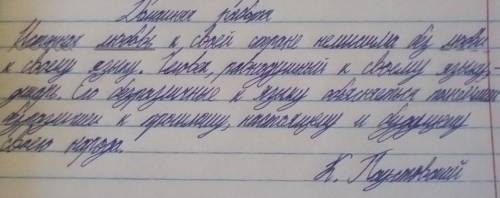 Домашняя работа
Истинная любовь к своей стране немыслима без любви
к своему языку. Человек, равнодушный к своему языку,-
дикарь. Его безразличие к языку объясняется полнейшим
безразличием к прошлому, настоящему и будущему
своего народа.
К. Паустовский